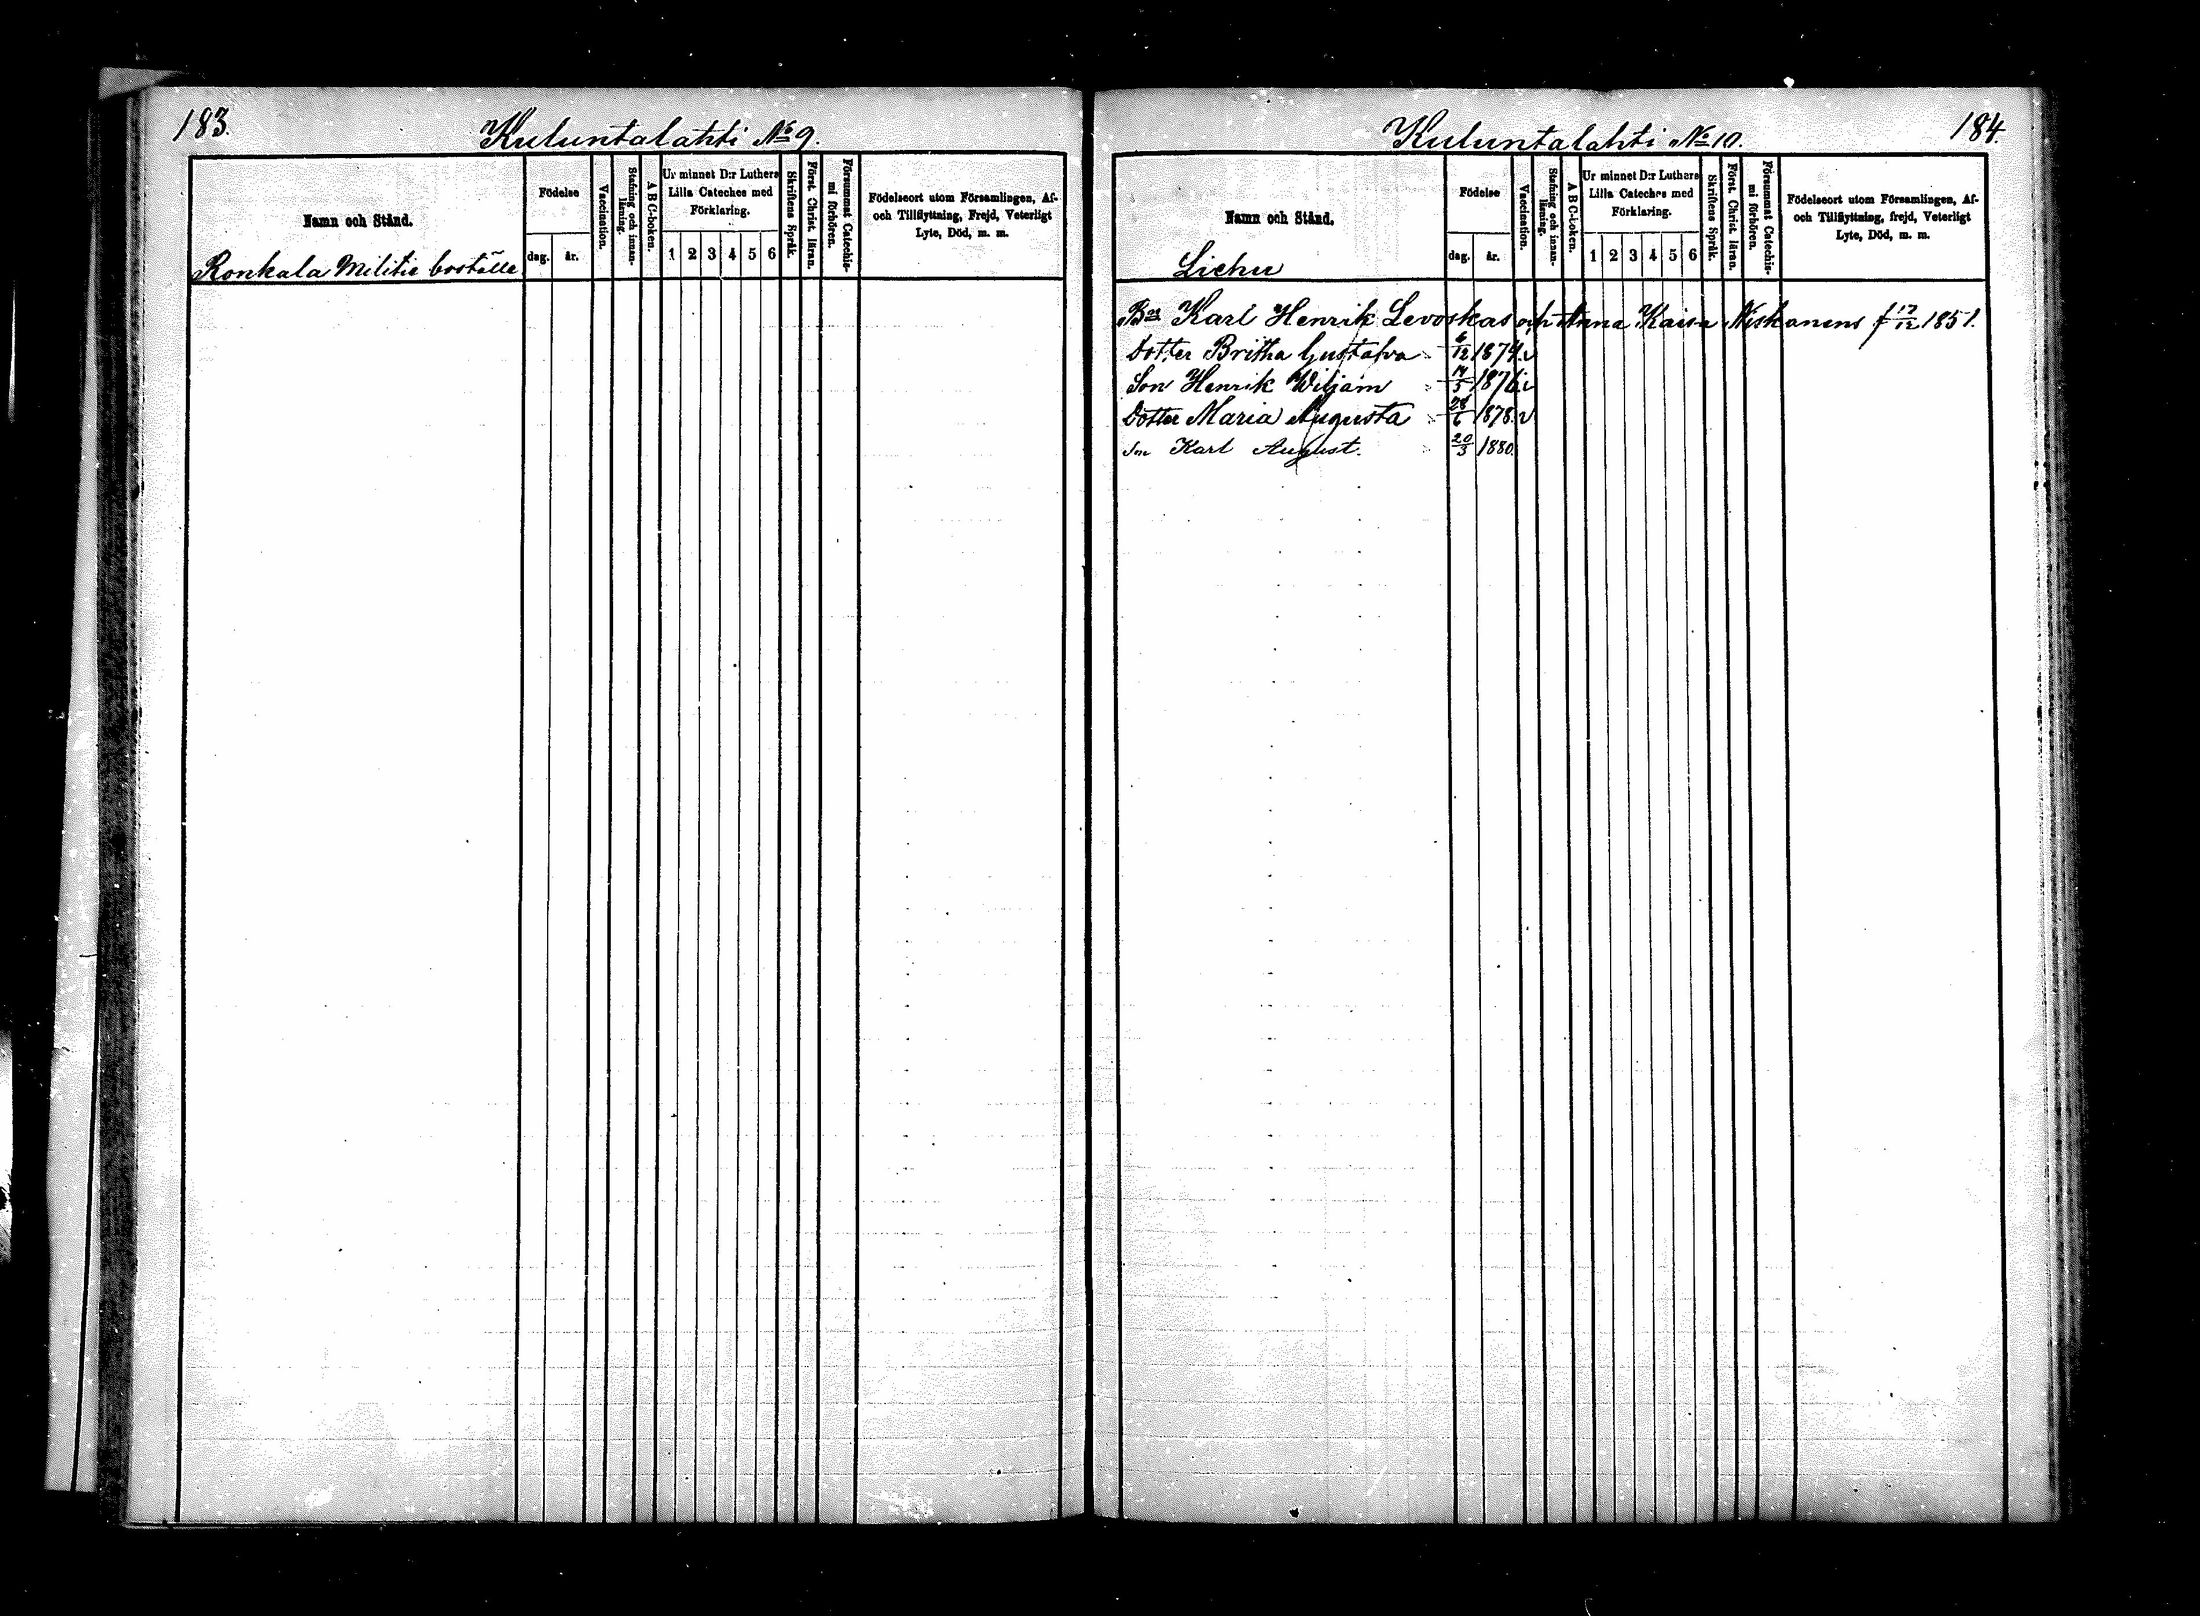 183.
Kuluntalahti № 9.
Namn och Stånd.
Ronkala Militie boställe
Födelse
dag.
år.
Vaccination.
Stafning och innan-
läsning.
A B C-boken.
Ur minnet D:r Luthers
Lilla Cateches med
Förklaring.
1 2 3 4 5 6
Skriftens Språk.
Först. Christ. läran.
Försummat Catechis-
mi förhören.
Födelseort utom Församlingen, Af-
och Tillflyttning, Frejd, Veterligt
Lyte, Död, m. m.
184.
Kuluntalahti № 10.
Namn och Stånd.
Liehu
Födelse
dag.
år.
Vaccination.
Stafning och innan-
läsning.
A B C-boken.
Ur minnet D:r Luthers
Lilla Cateches med
Förklaring.
1 2 3 4 5 6
Skriftens Språk.
Först. Christ. läran.
Försummat Catechis-
mi förhören.
Födelseort utom Församlingen, Af-
och Tillflyttning, frejd, Veterligt
Lyte, Död, m. m.
Karl Henrik Levoskas och Anna Kaisa Niskanens f 17/12 1851.
Dotter Britha Gustafva 6/12 1874. v
Son Henrik Wiljam 14/5 1876. v
Dotter Maria Augusta 28/6 1878. v
Son Karl August. 20/3 1880.